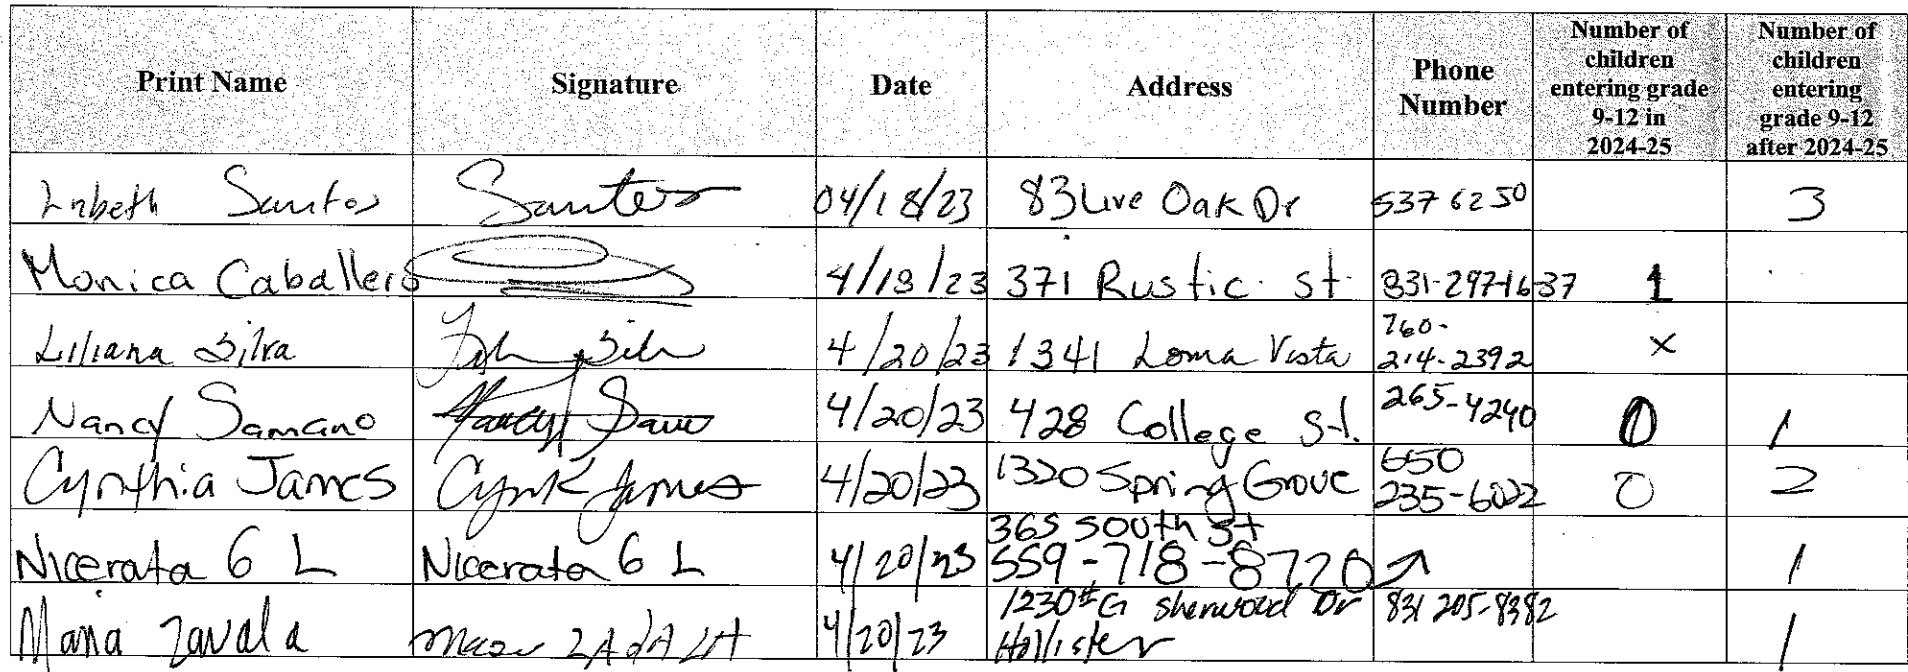 Print Name Signature Date Address Phone Number Number of children entering grade 9-12 in 2024-25 Number of children entering grade 9-12 after 2024-25
Santos Santos 04/18/23 83 Live Oak Dr 537 6250 3
Monica Caballero 4/18/23 371 Rustic. St. 831-297-1637 1
Liliana Silva 4/20/23 1341 Loma Vista 760-214-2392 x
Nancy Samano Nancy 4/20/23 428 College St. 265-4240 0 1
Cynthia James James 4/20/23 1320 Spring Grove 650 235-6022 0 2
Nicerata G L Nicerata G L 4/20/23 365 South St 559-718-8720 1
Maria Zavala 4/20/23 1230 #G Sherwood Dr Hollister 831 205-8382 1